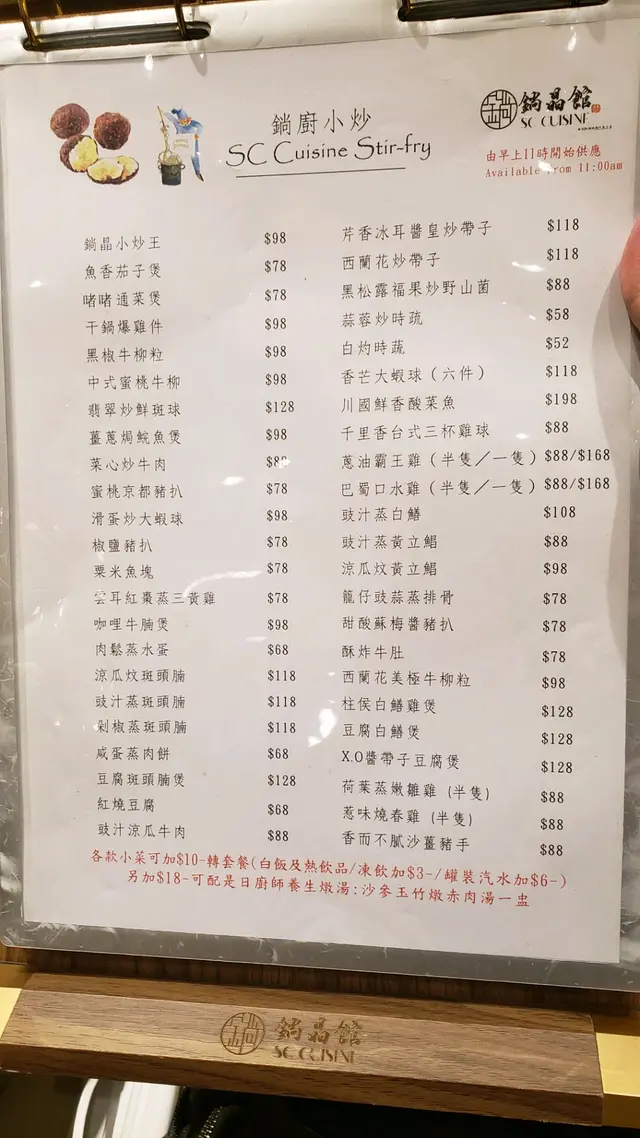 鋿廚小炒
SC Cuisine Stir-fry
鋿晶館
SC CUISINE
由早上11時開始供應
Available from 11:00am
鋿晶小炒王 $98
魚香茄子煲 $78
啫啫通菜煲 $78
干鍋爆雞件 $98
黑椒牛柳粒 $98
中式蜜桃牛柳 $98
翡翠炒鮮斑球 $128
薑蔥焗鯇魚煲 $98
菜心炒牛肉
蜜桃京都豬扒 $78
滑蛋炒大蝦球 $98
椒鹽豬扒 $78
粟米魚塊 $78
雲耳紅棗蒸三黃雞 $78
咖哩牛腩煲 $98
肉鬆蒸水蛋 $68
涼瓜炆斑頭腩 $118
豉汁蒸斑頭腩 $118
剁椒蒸斑頭腩 $118
咸蛋蒸肉餅 $68
豆腐斑頭腩煲 $128
紅燒豆腐 $68
豉汁涼瓜牛肉 $88
芹香冰耳醬皇炒帶子 $118
西蘭花炒帶子 $118
黑松露福果炒野山菌 $88
蒜蓉炒時疏 $58
白灼時蔬 $52
香芒大蝦球（六件） $118
川國鮮香酸菜魚 $198
千里香台式三杯雞球 $88
蔥油霸王雞（半隻／一隻） $88/$168
巴蜀口水雞（半隻／一隻） $88/$168
豉汁蒸白鱔 $108
豉汁蒸黃立鯧 $88
涼瓜炆黃立鯧 $98
籠仔豉蒜蒸排骨 $78
甜酸蘇梅醬豬扒 $78
酥炸牛肚 $78
西蘭花美極牛柳粒 $98
柱侯白鱔雞煲 $128
豆腐白鱔煲 $128
X.O醬帶子豆腐煲 $128
荷葉蒸嫩雛雞（半隻） $88
惹味燒春雞（半隻） $88
香而不膩沙薑豬手 $88
各款小菜可加$10-轉套餐(白飯及熱飲品/凍飲加$3-/罐裝汽水加$6-)
另加$18-可配是日廚師養生燉湯:沙參玉竹燉赤肉湯一盅
鋿晶館
SC CUISINE